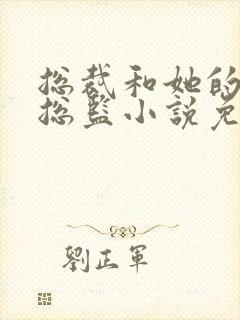 总裁和她的
总监小说免
劉正軍